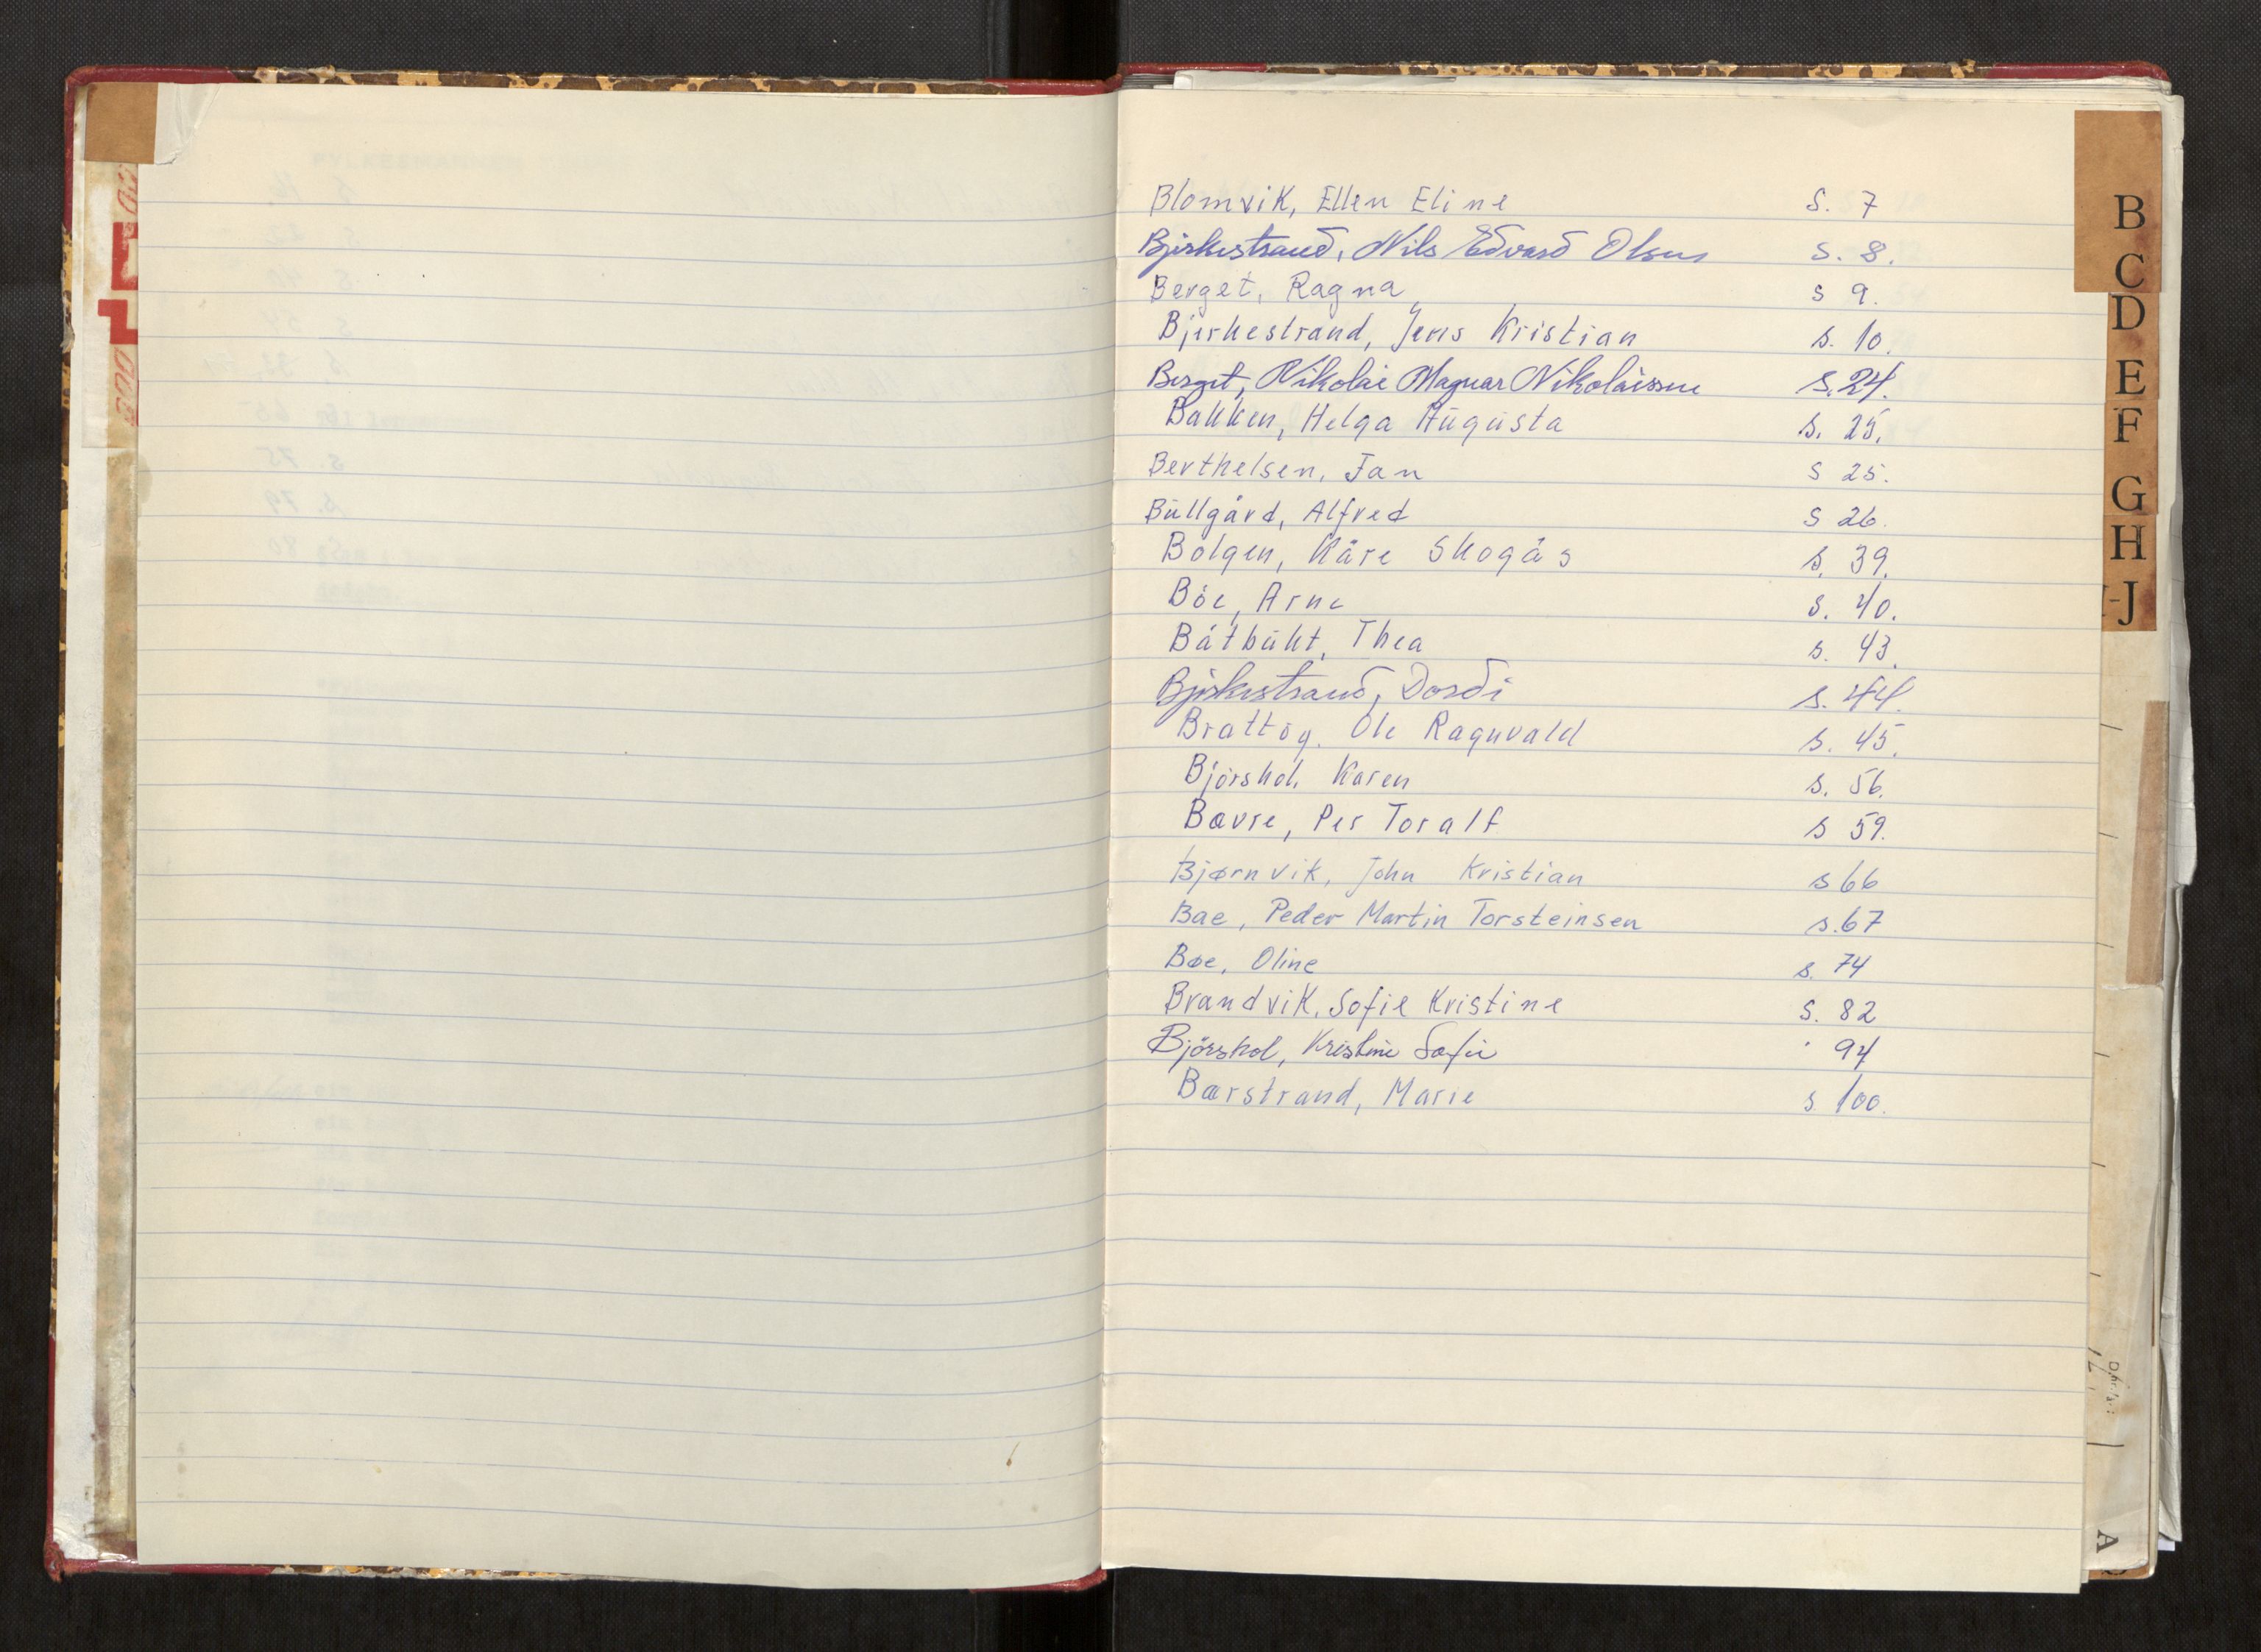 Blomvik, Ellen Eline S. 7
Bjerkestrand, Nils Edvard Olsen S. 8.
Berget, Ragna S 9.
Bjerkestrand, Jens Kristian s. 10.
Berget, Nikolai Magnar Nikolaissen s. 24.
Bakken, Helga Augusta s. 25.
Berthelsen, Jan S 25.
Bullgård, Alfred S 26.
Bolgen, Kåre Skogås s. 39.
Böe, Arne s. 40.
Båtbukt, Thea s. 43.
Bjerkestrand, Dordi s. 44.
Brattöy. Ole Ragnvald s. 45.
Björskol, Karen s. 56.
Bævre, Per Toralf s 59.
Bjørnvik, John Kristian s 66
Bae, Peder Martin Torsteinsen s. 67
Bøe, Oline s. 74
Brandvik, Sofie Kristine S. 82
Björskol, Kristine Sofie 94
Bærstrand, Marie s 100.
B
C
D
E
F
G
H
I-J
A